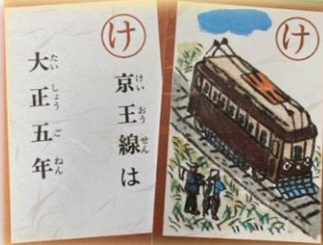 け
京王線は
けいおうせん
大正五年
たいしょうごねん
け